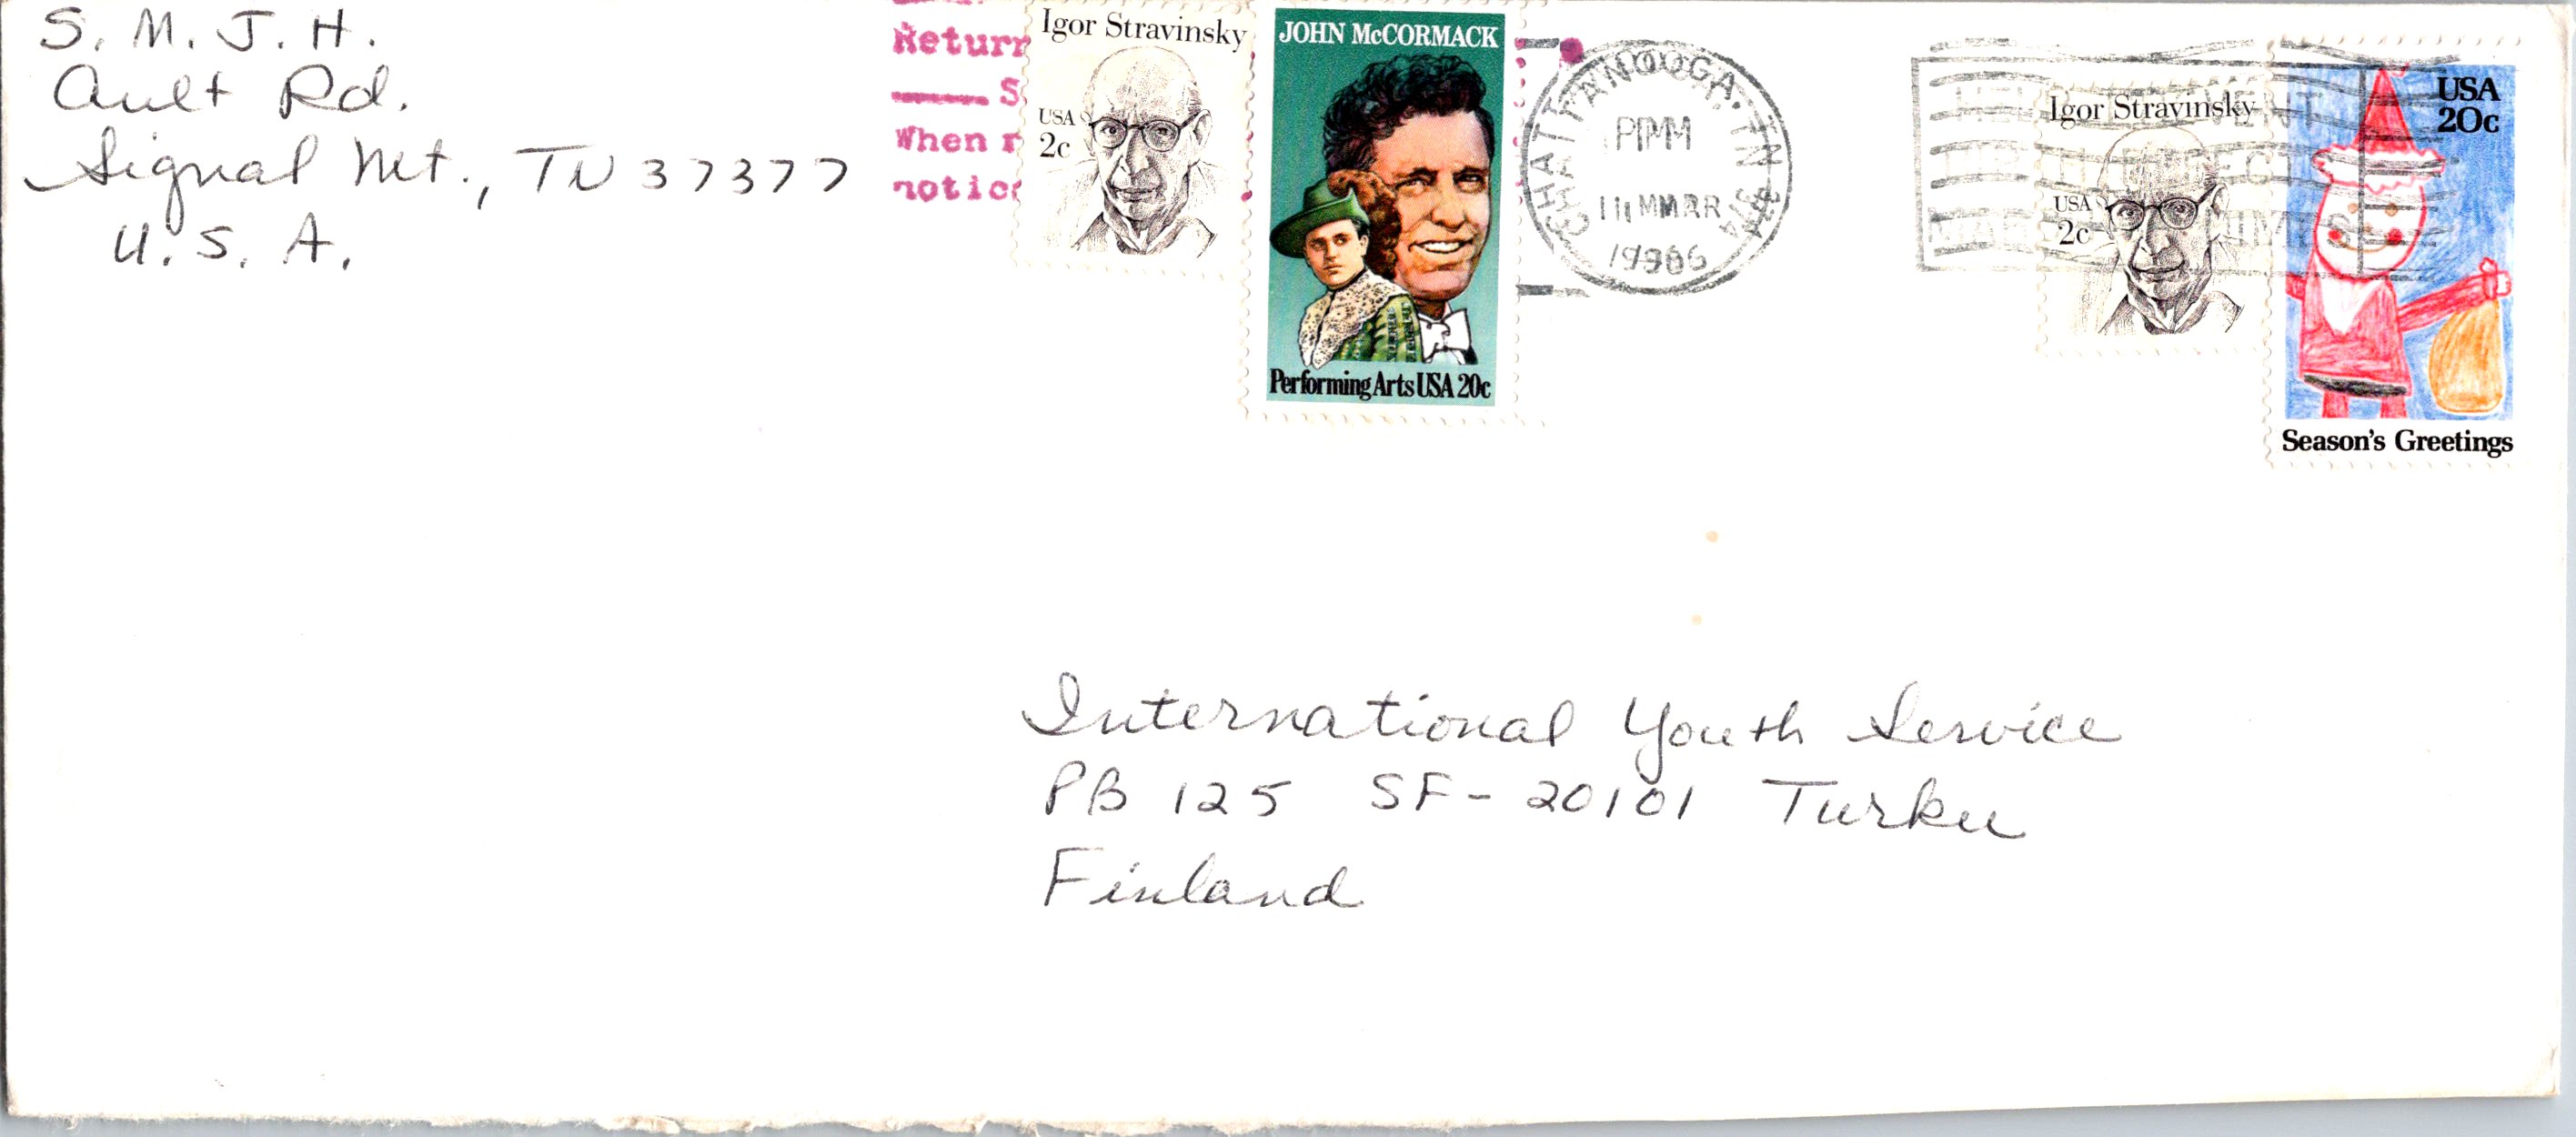 S. M. J. H.
Ault Rd.
Signal Mt., TN 37377
U. S. A.
Igor Stravinsky
USA
2c
JOHN McCORMACK
Performing Arts USA 20c
CHATTANOOGA, TN 374
PM
MAR
Igor Stravinsky
USA
2c
USA
20c
Season's Greetings
When
International Youth Service
PB 125 SF-20101 Turku
Finland